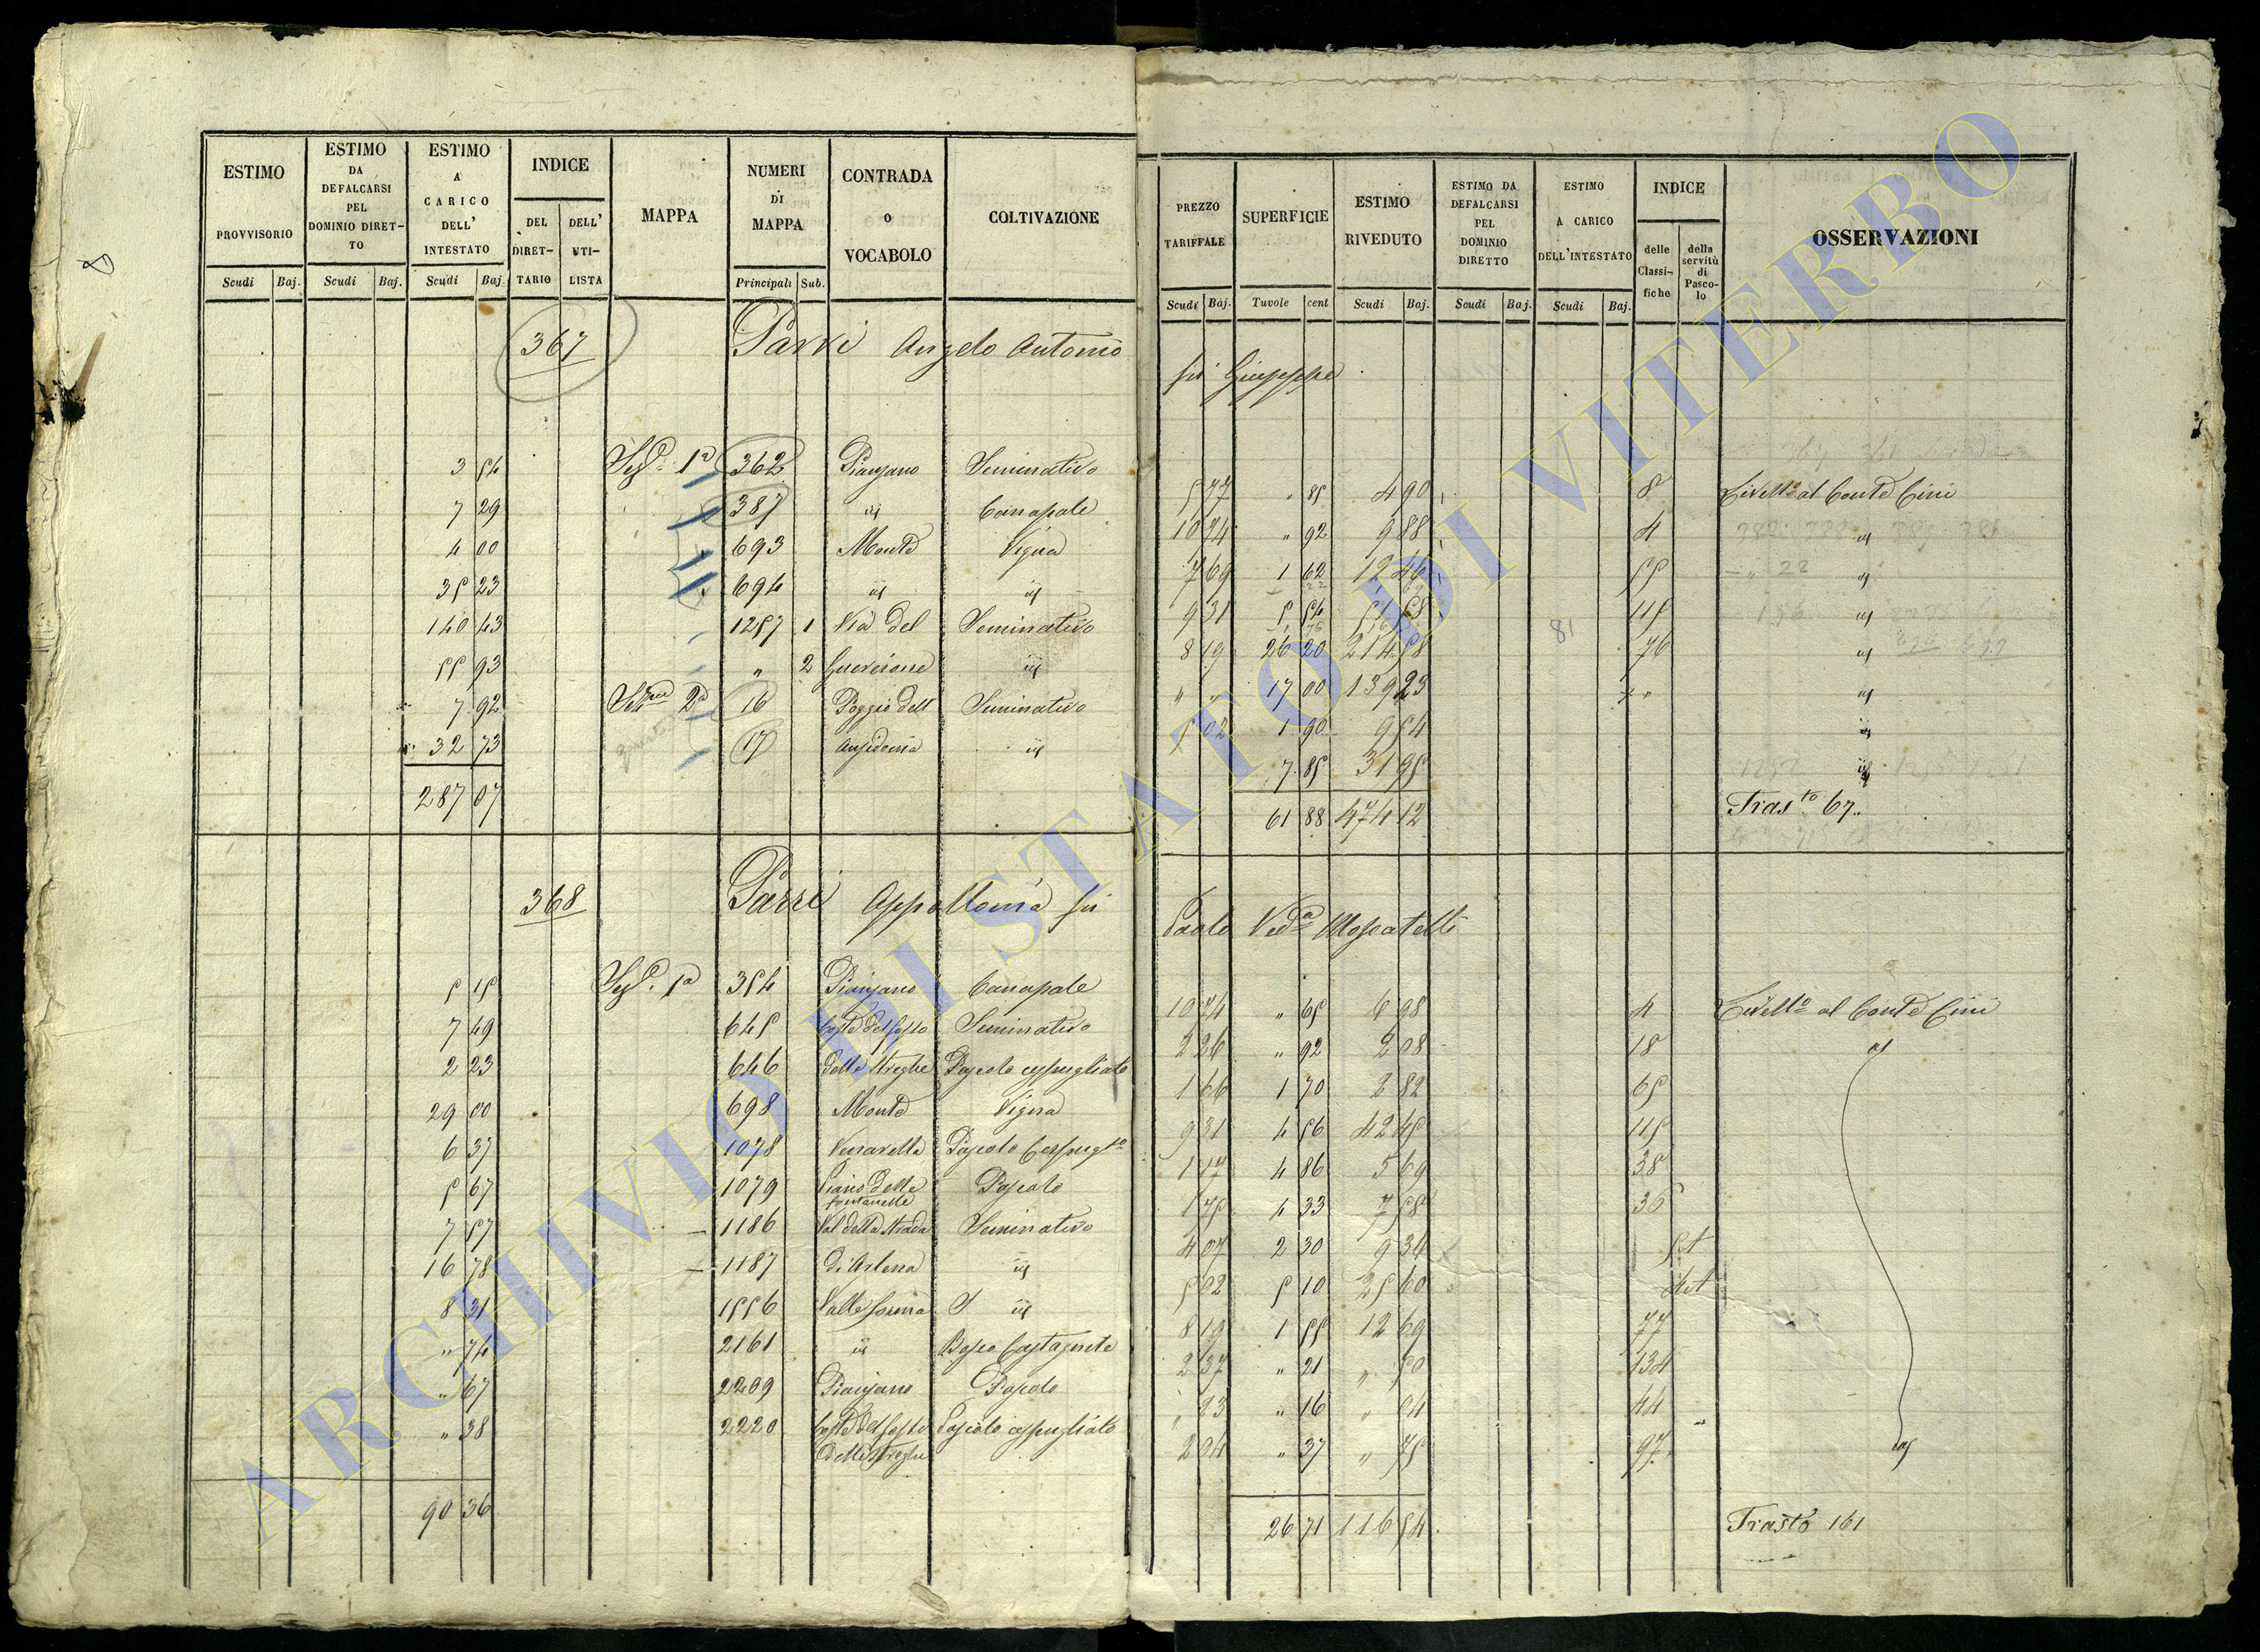 ESTIMO PROVVISORIO | ESTIMO DA DEFALCARSI PEL DOMINIO DIRETTO | ESTIMO A CARICO DELL' INTESTATO | INDICE DEL DIRETTARIO | DELL' UTILISTA | MAPPA | NUMERI DI MAPPA | CONTRADA O VOCABOLO | COLTIVAZIONE | PREZZO TARIFFALE | SUPERFICIE | ESTIMO RIVEDUTO | ESTIMO DA DEFALCARSI PEL DOMINIO DIRETTO | ESTIMO A CARICO DELL'INTESTATO | INDICE delle Classifiche | della servitù di Pascolo | OSSERVAZIONI
Scudi Baj. Scudi Baj. Scudi Baj. Principali Sub. Scudi Baj. Tavole cent Scudi Baj. Scudi Baj. Scudi Baj.
367 Parri Angelo Antonio fu Giuseppe
3 54 Sez. 1a 362 Pianzano Seminativo 5 77 " 85 4 90 8 Livello al Conte Cini
7 29 387 id Canapale 10 74 " 92 9 88 4 id
4 00 693 Monte Vigna 7 69 1 62 12 46 55 id
35 23 694 id id 9 31 5 54 51 58 115 id
140 43 1257 1 Via del Seminativo 8 19 26 20 214 58 76 id
81
55 93 " 2 Guercione id " " 17 00 139 23 " id
7 92 2a 16 Poggio dell Seminativo 5 02 1 90 9 54 id
32 73 17 Ansidonia id 7 85 31 95 id
287 07 61 88 474 12 Tras.to 67
368 Parri Appollonia fu Paolo Ved.a Moscatelli
5 15 Sez. 1a 354 Pianzano Canapale 10 74 " 65 6 98 4 Livello al Conte Cini
7 49 645 Coste del fosso Seminativo 2 26 " 92 2 08 18 id
2 23 646 delle Streghe Pascolo cespugliato 1 66 1 70 2 82 65
29 00 698 Monte Vigna 9 31 4 56 42 45 115
6 37 1078 Pascolo Cespugto 1 17 4 86 5 69 38
5 67 1079 Piano delle fontanelle Pascolo 1 75 4 33 7 58 36
7 57 1186 Val della Strada Seminativo 4 07 2 30 9 34
16 78 1187 di Arlena id 5 02 5 10 25 60
8 31 1556 Valle forma S id 8 19 1 55 12 69 77
" 74 2161 id Bosco Castagneto 2 37 " 21 " 50 134
" 67 2209 Pianzano Pascolo " 23 " 16 " 04 44
" 38 2220 Coste del fosso delle Streghe Pascolo cespugliato 2 04 " 37 " 75 97 id
90 36 26 71 116 54 Trasto 161
ARCHIVIO DI STATO DI VITERBO